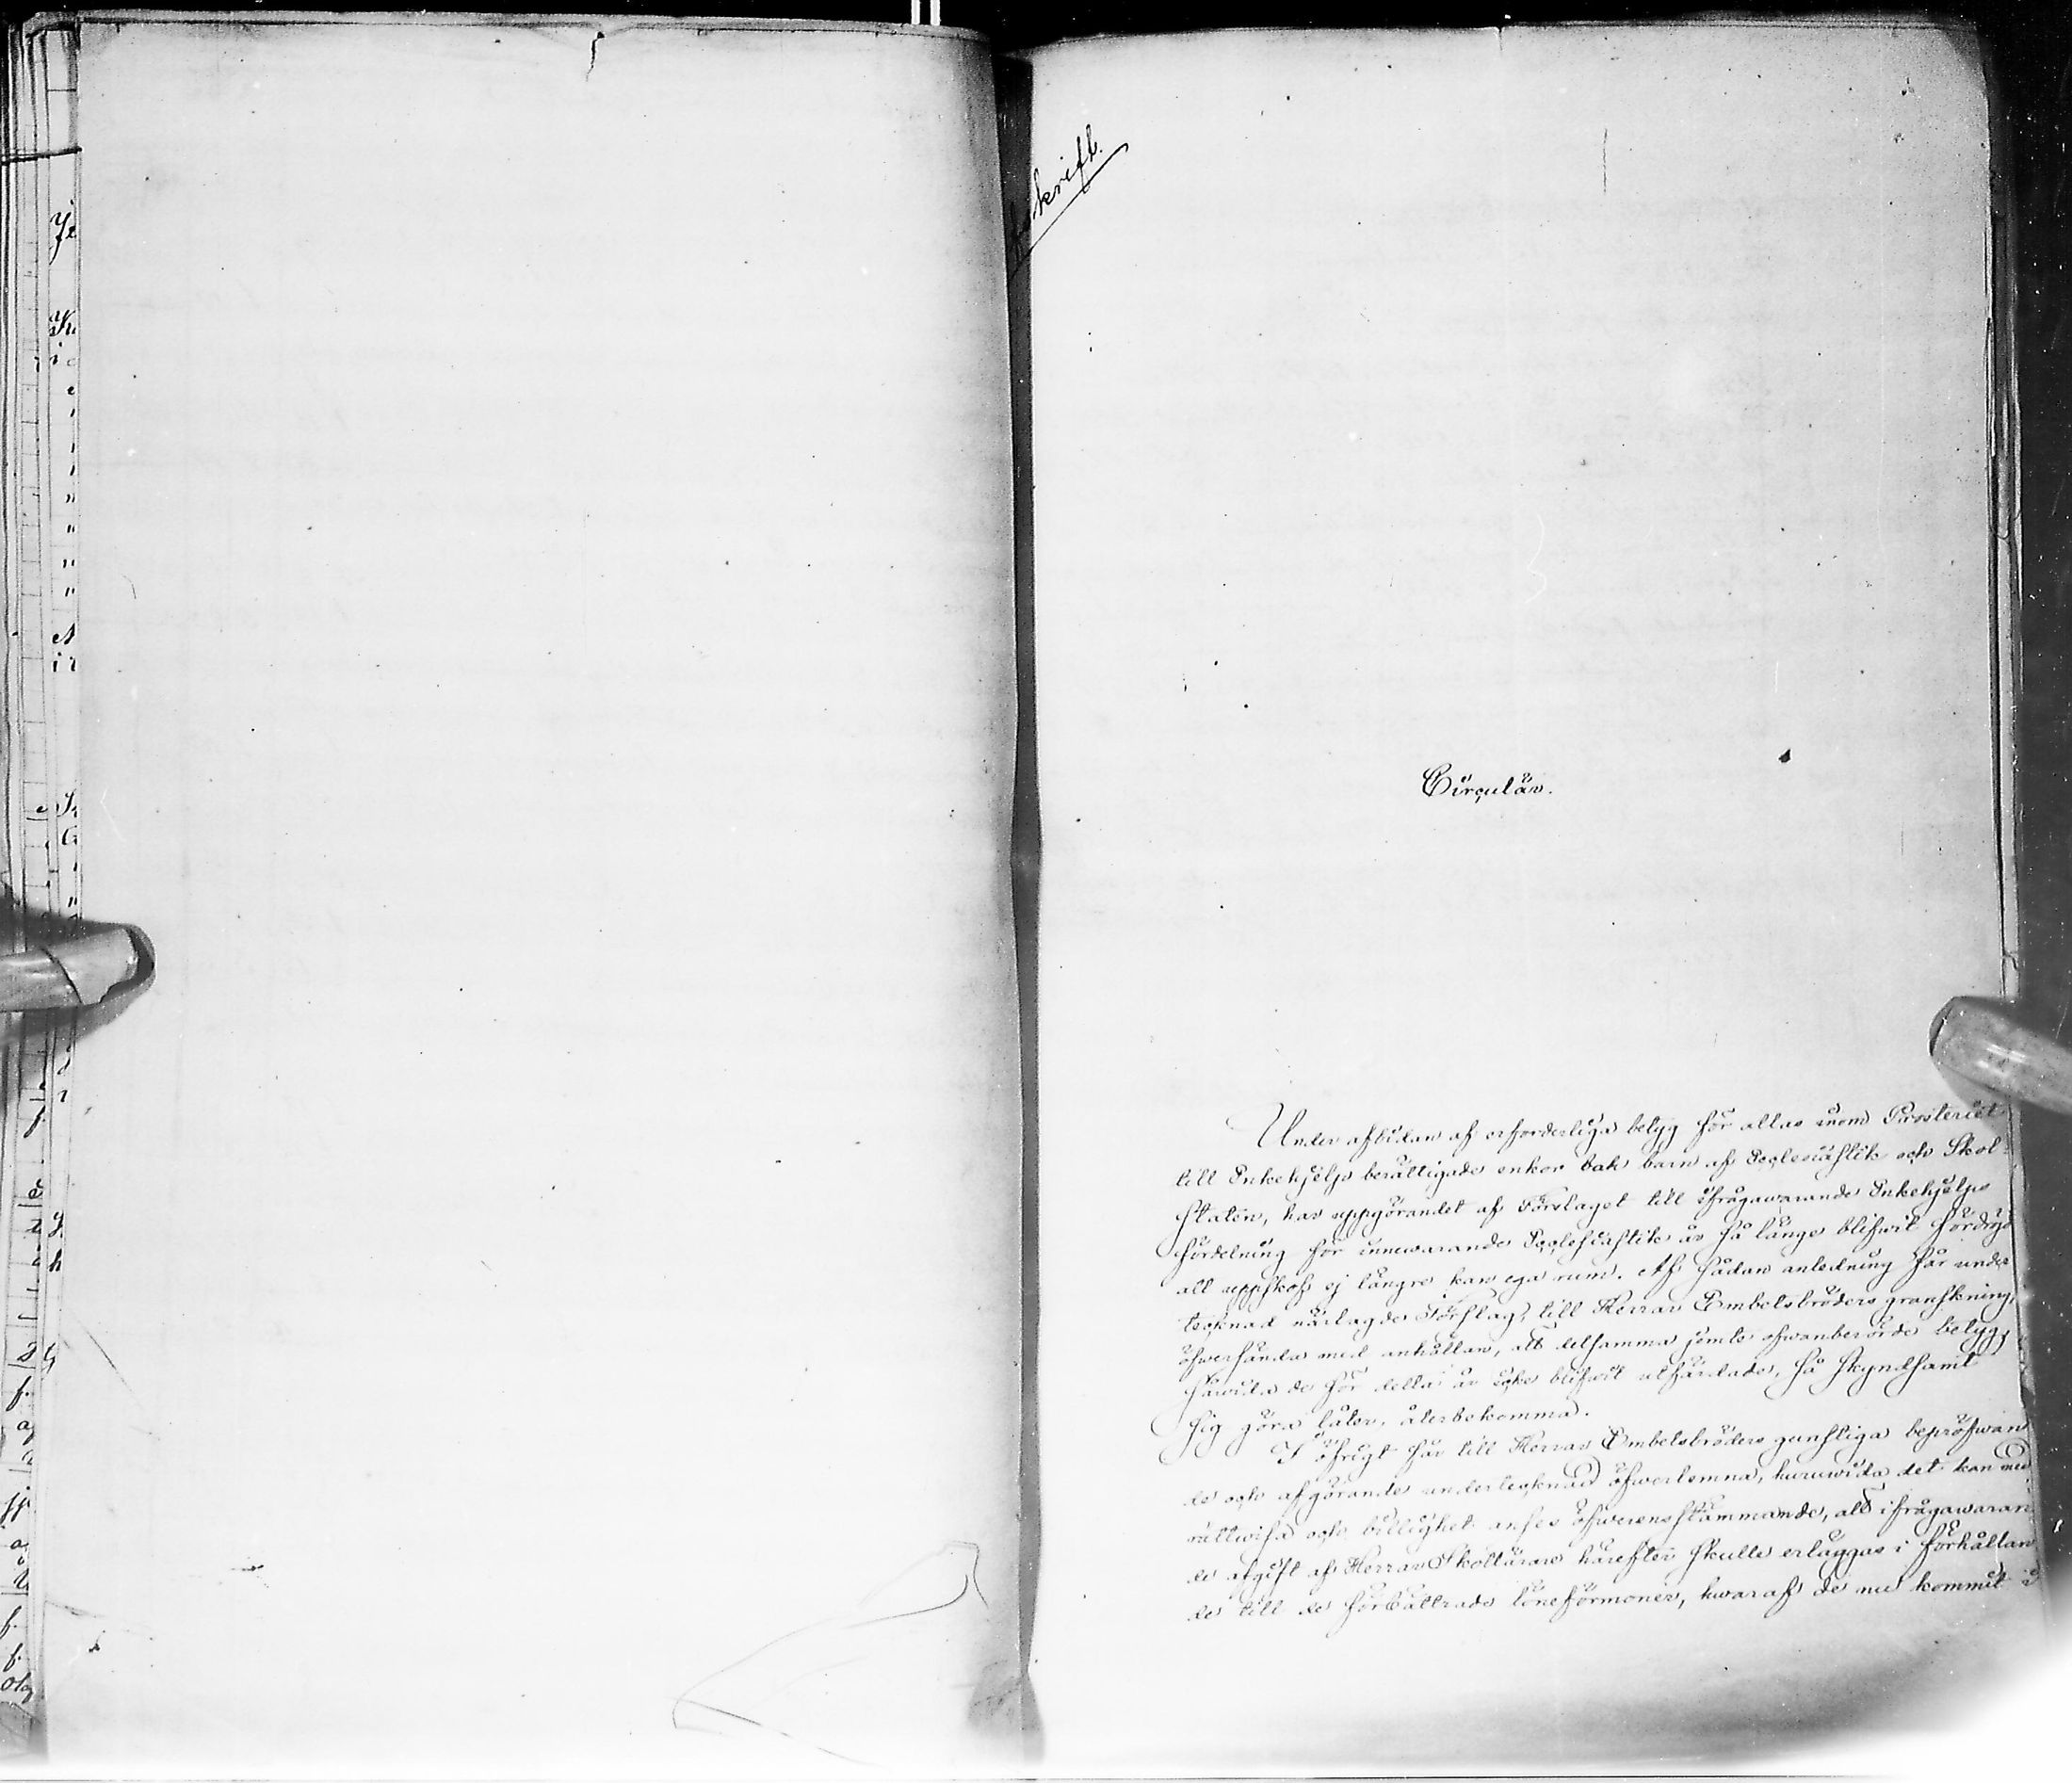 skrift.
Circulär.
Under afbidan af erforderliga betyg för allas inom Prosteriet
till Enkehjelp berättigade enkor och barn af Ecclesiastik och Skol-
staten, har uppgörandet af Förslaget till ifrågawarande Enkehjelps
fördelning för innewarande Ecclesiastik år så länge blifwit fördröjd
att uppskof ej längre kan ega rum. Af sådan anledning får under
tecknad närlagde Förslag, till Herrar Embetsbröders granskning,
öfwersända med anhållan, att detsamma jemte ofwanberörde betyg,
såwida de för detta år icke blifwit utfärdade, så skyndsamt
sig göra låter, återbekomma.
I öfrigt får till Herrar Embetsbröders gunstiga bepröfwan
de och afgörande undertecknad öfwerlemna, huruwida det kan med
rättwisa och billighet anses öfwerensstämmande, att ifrågawaran
de afgift af Herrar Skollärare härefter skulle erläggas i förhållan
de till de förbättrade löneförmoner, hwaraf de nu kommit i